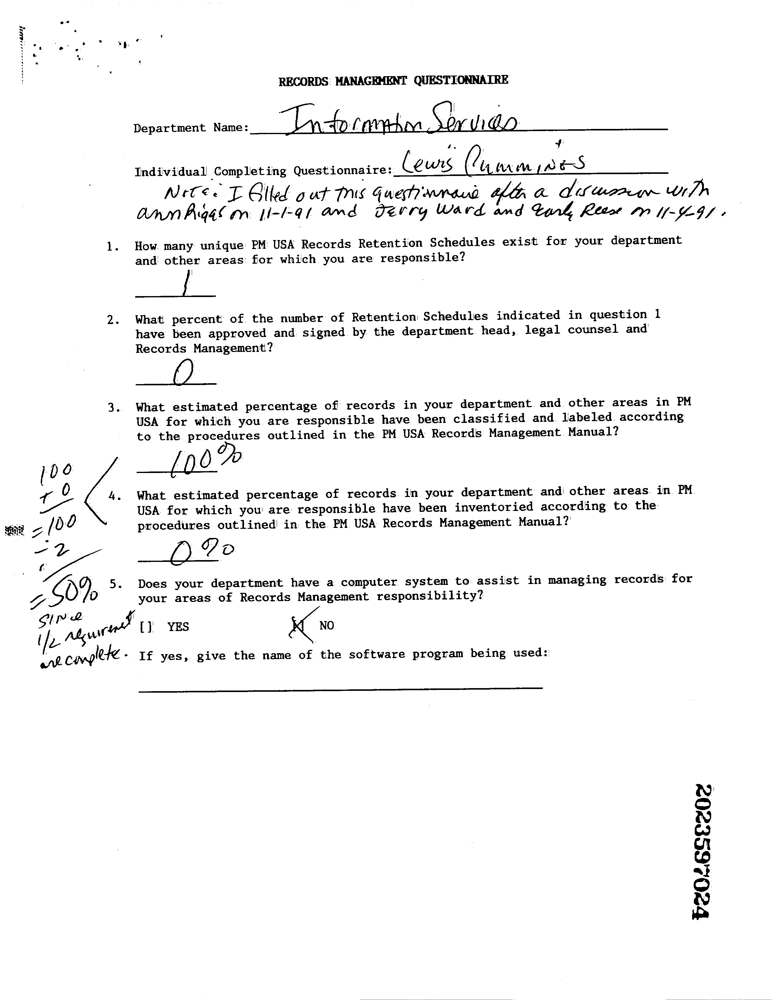 RECORDS MANAGEMENT QUESTIONNAIRE
Department Name: Information Services
Individual Completing Questionnaire: Lewis Cummings
Note: I filled out this questionnaire after a discussion with
Ann Riggs on 11-1-91 and Jerry Ward and Early Reese on 11-4-91.
1. How many unique PM USA Records Retention Schedules exist for your department
and other areas for which you are responsible?
1
2. What percent of the number of Retention Schedules indicated in question 1
have been approved and signed by the department head, legal counsel and
Records Management?
0
3. What estimated percentage of records in your department and other areas in PM
USA for which you are responsible have been classified and labeled according
to the procedures outlined in the PM USA Records Management Manual?
100%
4. What estimated percentage of records in your department and other areas in PM
USA for which you are responsible have been inventoried according to the
procedures outlined in the PM USA Records Management Manual?
0%
100
+ 0
= 100
÷ 2
= 50%
SINCE
1/2 requirement
are complete.
5. Does your department have a computer system to assist in managing records for
your areas of Records Management responsibility?
[ ] YES [X] NO
If yes, give the name of the software program being used:
2023597024